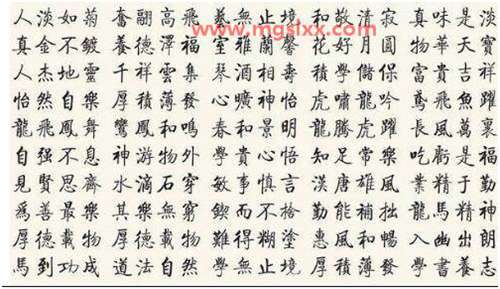 www.mgslxx.com
人淡如菊 奮翮高飛 藝無止境 和敬清寂 真味是淡
真金不鍍 養德澤福 室雅蘭馨 花好月圓 物華天寶
人杰地靈 千祥雲集 琴酒相壽 積學儲 富貴吉祥
怡然自樂 厚積薄發 心曠神怡 虎嘯龍吟 鳶飛魚躍
龍飛鳳舞 鸞鳳和鳴 春和景明 龍騰虎躍 長風萬裏
自强不息 神游物外 學貴心悟 知足常樂 吃虧是福
見賢思齊 水滴石穿 敏事慎言 漢唐雄風 業精于勤
爲善最樂 其樂無窮 鍥而不捨 勤能補拙 龍馬精神
厚德載物 厚德載物 難得糊塗 惠風和暢 入幽出朗
馬到功成 道法自然 學無止境 厚積薄發 學書養志